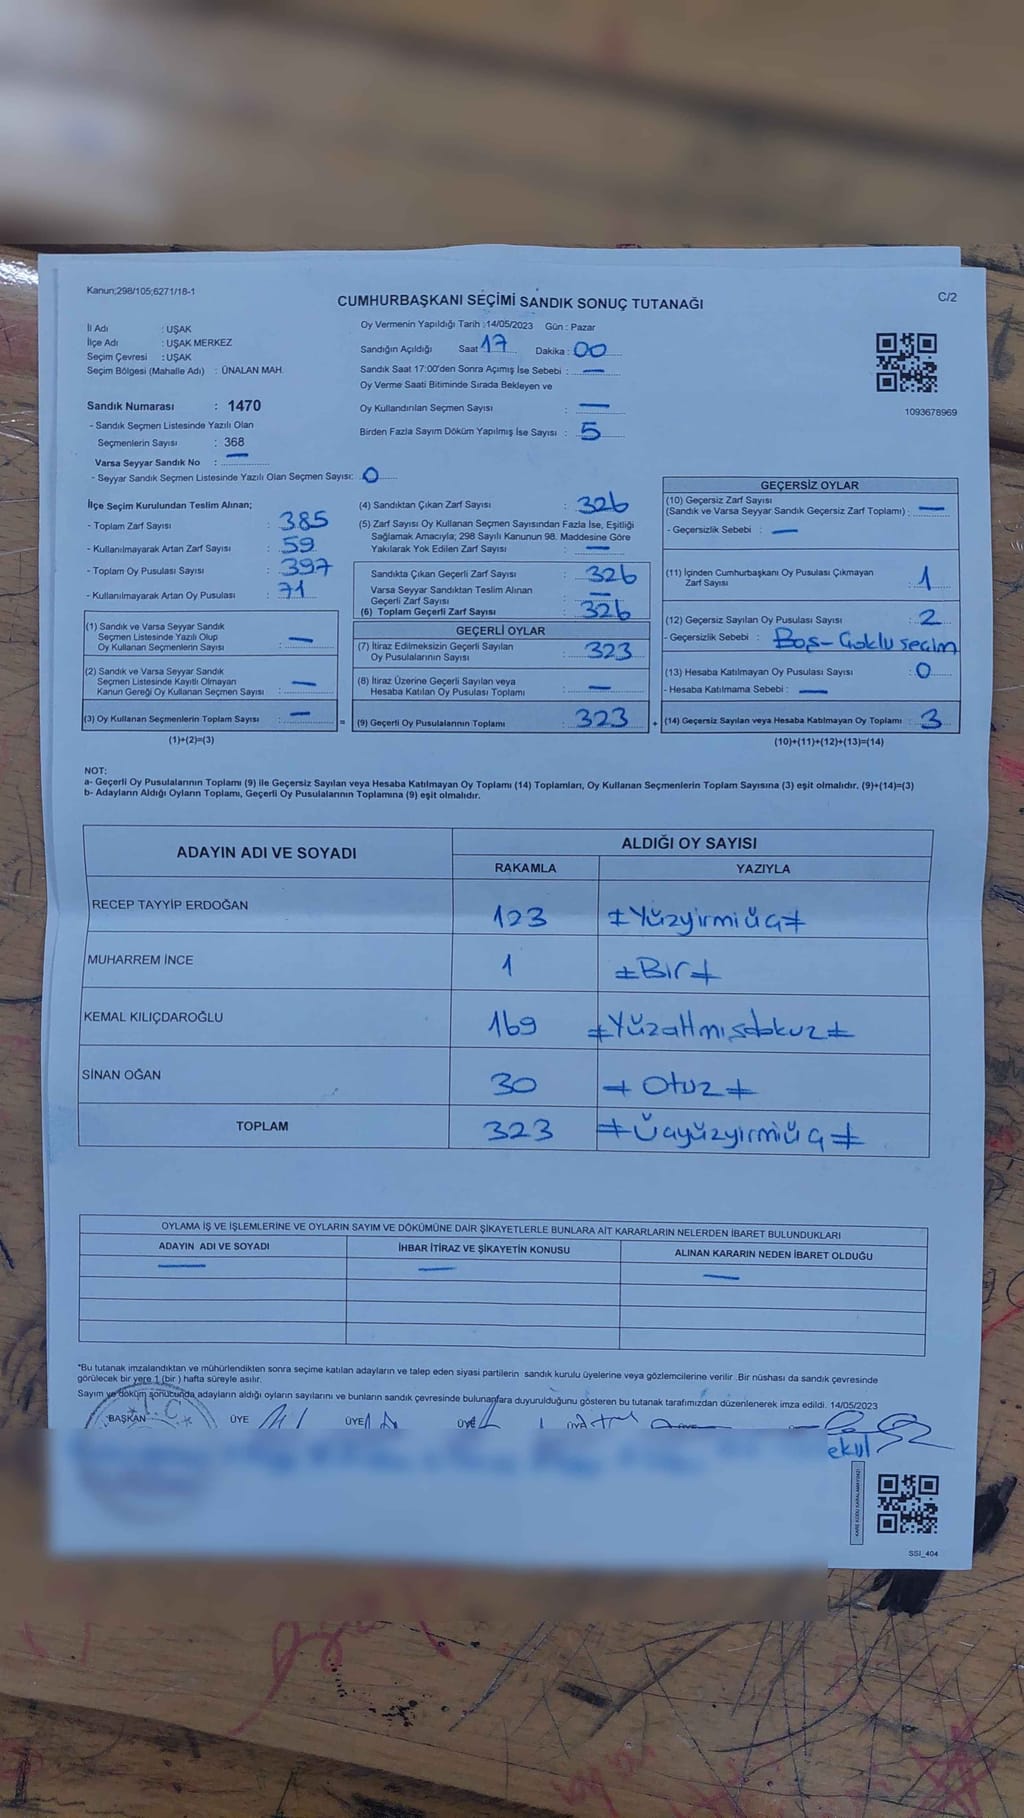 Kanun;298/105;6271/18-1
CUMHURBAŞKANI SEÇİMİ SANDIK SONUÇ TUTANAĞI
C/2
İl Adı : UŞAK
İlçe Adı : UŞAK MERKEZ
Seçim Çevresi : UŞAK
Seçim Bölgesi (Mahalle Adı) : ÜNALAN MAH.
Oy Vermenin Yapıldığı Tarih :14/05/2023 Gün : Pazar
Sandığın Açıldığı Saat 17 Dakika : 00
Sandık Saat 17:00'den Sonra Açımış İse Sebebi : —
Oy Verme Saati Bitiminde Sırada Bekleyen ve
Oy Kullandırılan Seçmen Sayısı : —
Birden Fazla Sayım Döküm Yapılmış İse Sayısı : 5
1093678969
Sandık Numarası : 1470
- Sandık Seçmen Listesinde Yazılı Olan
Seçmenlerin Sayısı : 368
Varsa Seyyar Sandık No : —
- Seyyar Sandık Seçmen Listesinde Yazılı Olan Seçmen Sayısı: 0
İlçe Seçim Kurulundan Teslim Alınan;
- Toplam Zarf Sayısı : 385
- Kullanılmayarak Artan Zarf Sayısı : 59
- Toplam Oy Pusulası Sayısı : 397
- Kullanılmayarak Artan Oy Pusulası : 71
(1) Sandık ve Varsa Seyyar Sandık
Seçmen Listesinde Yazılı Olup
Oy Kullanan Seçmenlerin Sayısı : —
(2) Sandık ve Varsa Seyyar Sandık
Seçmen Listesinde Kayıtlı Olmayan
Kanun Gereği Oy Kullanan Seçmen Sayısı : —
(3) Oy Kullanan Seçmenlerin Toplam Sayısı : —
(1)+(2)=(3)
=
(4) Sandıktan Çıkan Zarf Sayısı : 326
(5) Zarf Sayısı Oy Kullanan Seçmen Sayısından Fazla İse, Eşitliği
Sağlamak Amacıyla; 298 Sayılı Kanunun 98. Maddesine Göre
Yakılarak Yok Edilen Zarf Sayısı : —
Sandıkta Çıkan Geçerli Zarf Sayısı : 326
Varsa Seyyar Sandıktan Teslim Alınan
Geçerli Zarf Sayısı : —
(6) Toplam Geçerli Zarf Sayısı : 326
GEÇERLİ OYLAR
(7) İtiraz Edilmeksizin Geçerli Sayılan
Oy Pusulalarının Sayısı : 323
(8) İtiraz Üzerine Geçerli Sayılan veya
Hesaba Katılan Oy Pusulası Toplamı : —
(9) Geçerli Oy Pusulalarının Toplamı : 323
+
GEÇERSİZ OYLAR
(10) Geçersiz Zarf Sayısı
(Sandık ve Varsa Seyyar Sandık Geçersiz Zarf Toplamı) : —
- Geçersizlik Sebebi : —
(11) İçinden Cumhurbaşkanı Oy Pusulası Çıkmayan
Zarf Sayısı : 1
(12) Geçersiz Sayılan Oy Pusulası Sayısı : 2
- Geçersizlik Sebebi : Boş-Çoklu seçim
(13) Hesaba Katılmayan Oy Pusulası Sayısı : 0
- Hesaba Katılmama Sebebi : —
(14) Geçersiz Sayılan veya Hesaba Katılmayan Oy Toplamı : 3
(10)+(11)+(12)+(13)=(14)
NOT:
a- Geçerli Oy Pusulalarının Toplamı (9) ile Geçersiz Sayılan veya Hesaba Katılmayan Oy Toplamı (14) Toplamları, Oy Kullanan Seçmenlerin Toplam Sayısına (3) eşit olmalıdır. (9)+(14)=(3)
b- Adayların Aldığı Oyların Toplamı, Geçerli Oy Pusulalarının Toplamına (9) eşit olmalıdır.
ADAYIN ADI VE SOYADI ALDIĞI OY SAYISI
RAKAMLA YAZIYLA
RECEP TAYYİP ERDOĞAN 123 ≠Yüzyirmiüç≠
MUHARREM İNCE 1 ≠Bir≠
KEMAL KILIÇDAROĞLU 169 ≠Yüzaltmışdokuz≠
SİNAN OĞAN 30 ≠Otuz≠
TOPLAM 323 ≠Üçyüzyirmiüç≠
OYLAMA İŞ VE İŞLEMLERİNE VE OYLARIN SAYIM VE DÖKÜMÜNE DAİR ŞİKAYETLERLE BUNLARA AİT KARARLARIN NELERDEN İBARET BULUNDUKLARI
ADAYIN ADI VE SOYADI İHBAR İTİRAZ VE ŞİKAYETİN KONUSU ALINAN KARARIN NEDEN İBARET OLDUĞU
— — —
*Bu tutanak imzalandıktan ve mühürlendikten sonra seçime katılan adayların ve talep eden siyasi partilerin sandık kurulu üyelerine veya gözlemcilerine verilir .Bir nüshası da sandık çevresinde
görülecek bir yere 1 (bir ) hafta süreyle asılır.
Sayım ve döküm sonucunda adayların aldığı oyların sayılarını ve bunların sandık çevresinde bulunanlara duyurulduğunu gösteren bu tutanak tarafımızdan düzenlenerek imza edildi. 14/05/2023
BAŞKAN ÜYE ÜYE ÜYE
T.C.
ekul
KARE KODU KARALAMAYINIZ!
SSI_404